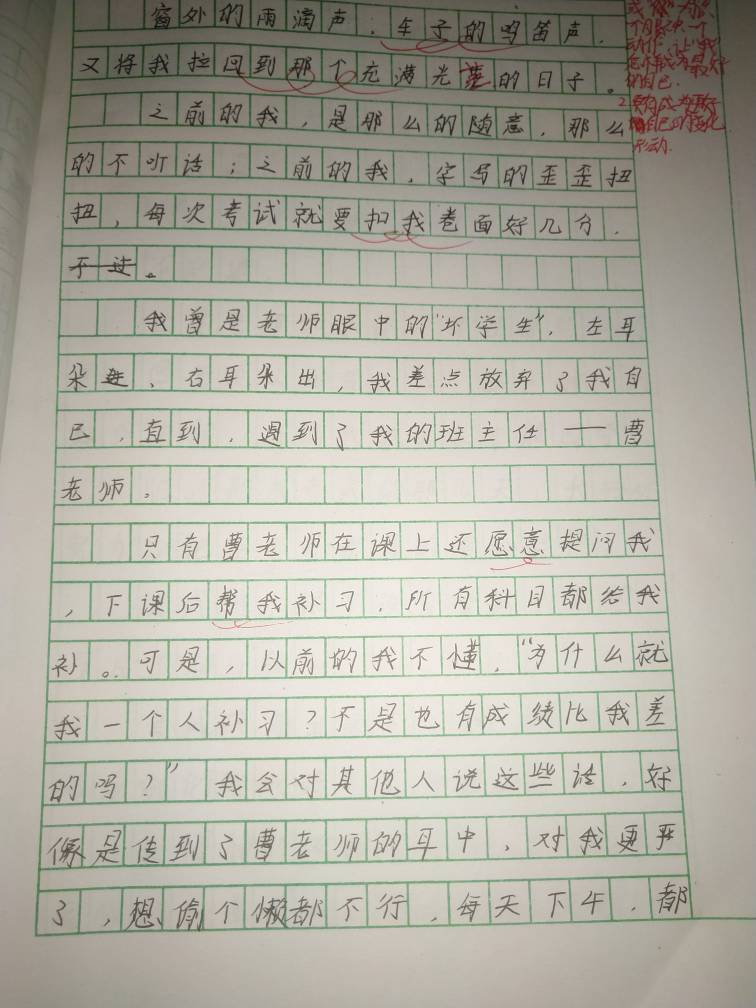 窗外的雨滴声，车子的鸣笛声，
又将我拉回到那个充满光芒的日子。
之前的我，是那么的随意，那么
的不听话；之前的我，字写的歪歪扭
扭，每次考试就要扣我卷面好几分，
不过。
我曾是老师眼中的“坏学生”，左耳
朵进、右耳朵出，我差点放弃了我自
已，直到，遇到了我的班主任——曹
老师。
只有曹老师在课上还愿意提问我
，下课后帮我补习，所有科目都给我
补。可是，以前的我不懂，“为什么就
我一个人补习？不是也有成绩比我差
的吗？”我会对其他人说这些话，好
像是传到了曹老师的耳中，对我更严
了，想偷个懒都不行，每天下午，都
个
动作，让“我
成为最好
的自己.
2.
自己的变化